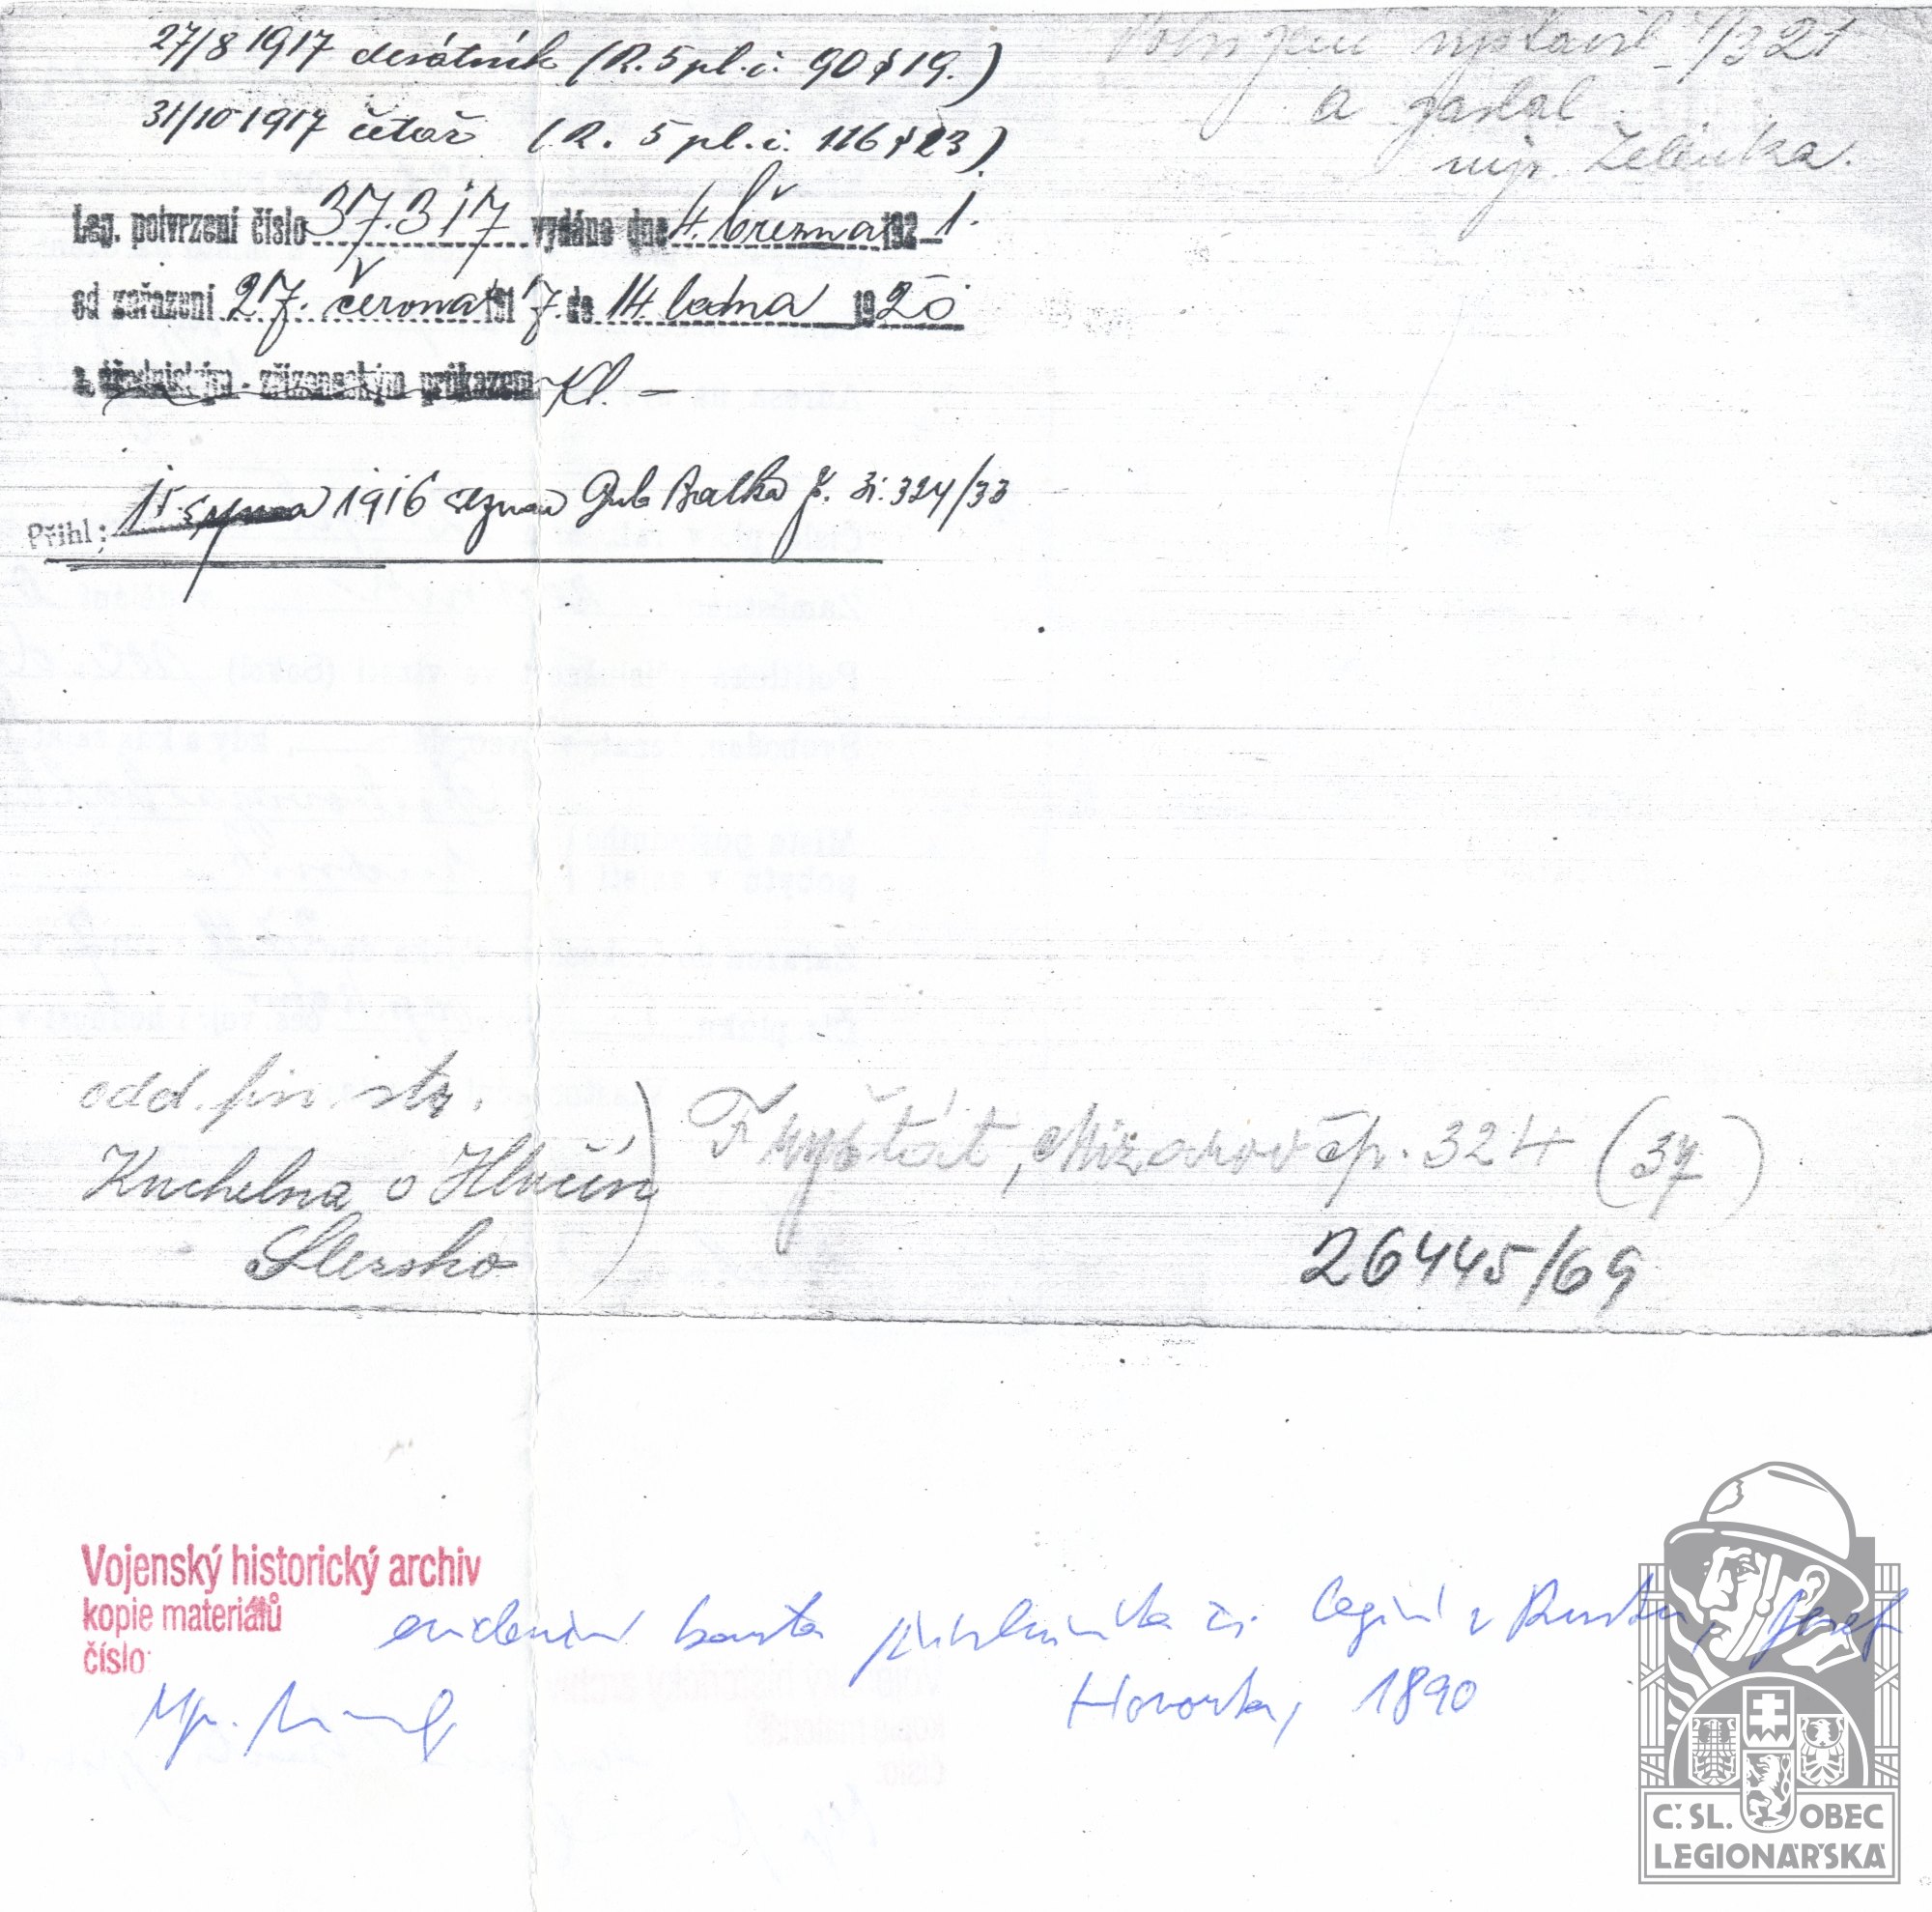 27/8 1917 desátník (R. 5 pl. č. 90 § 19.)
31/10 1917 četař (R. 5 pl. č. 116 § 23)
Potvrzení vystavil 4/3 21
a zaslal
mjr. Zelinka.
Leg. potvrzení číslo 37.317 vydáno dne 4. března 1921.
od zařazení 27. června 1917. do 14. ledna 1920
s úřednickým - zřízeneckým průkazem Kl. —
Přihl: 15. srpna 1916 seznam č. 324/33
odd. fin. str.
Kuchelna o Hlučín
Slezsko
Fryštát, Mizerov čp. 324 (37)
26445/69
Vojenský historický archiv
kopie materiálů
číslo:
evidenční karta příslušníka čs. legií v Rusku, Josef
Hovorka, 1890
Č. SL. OBEC
LEGIONÁŘSKÁ